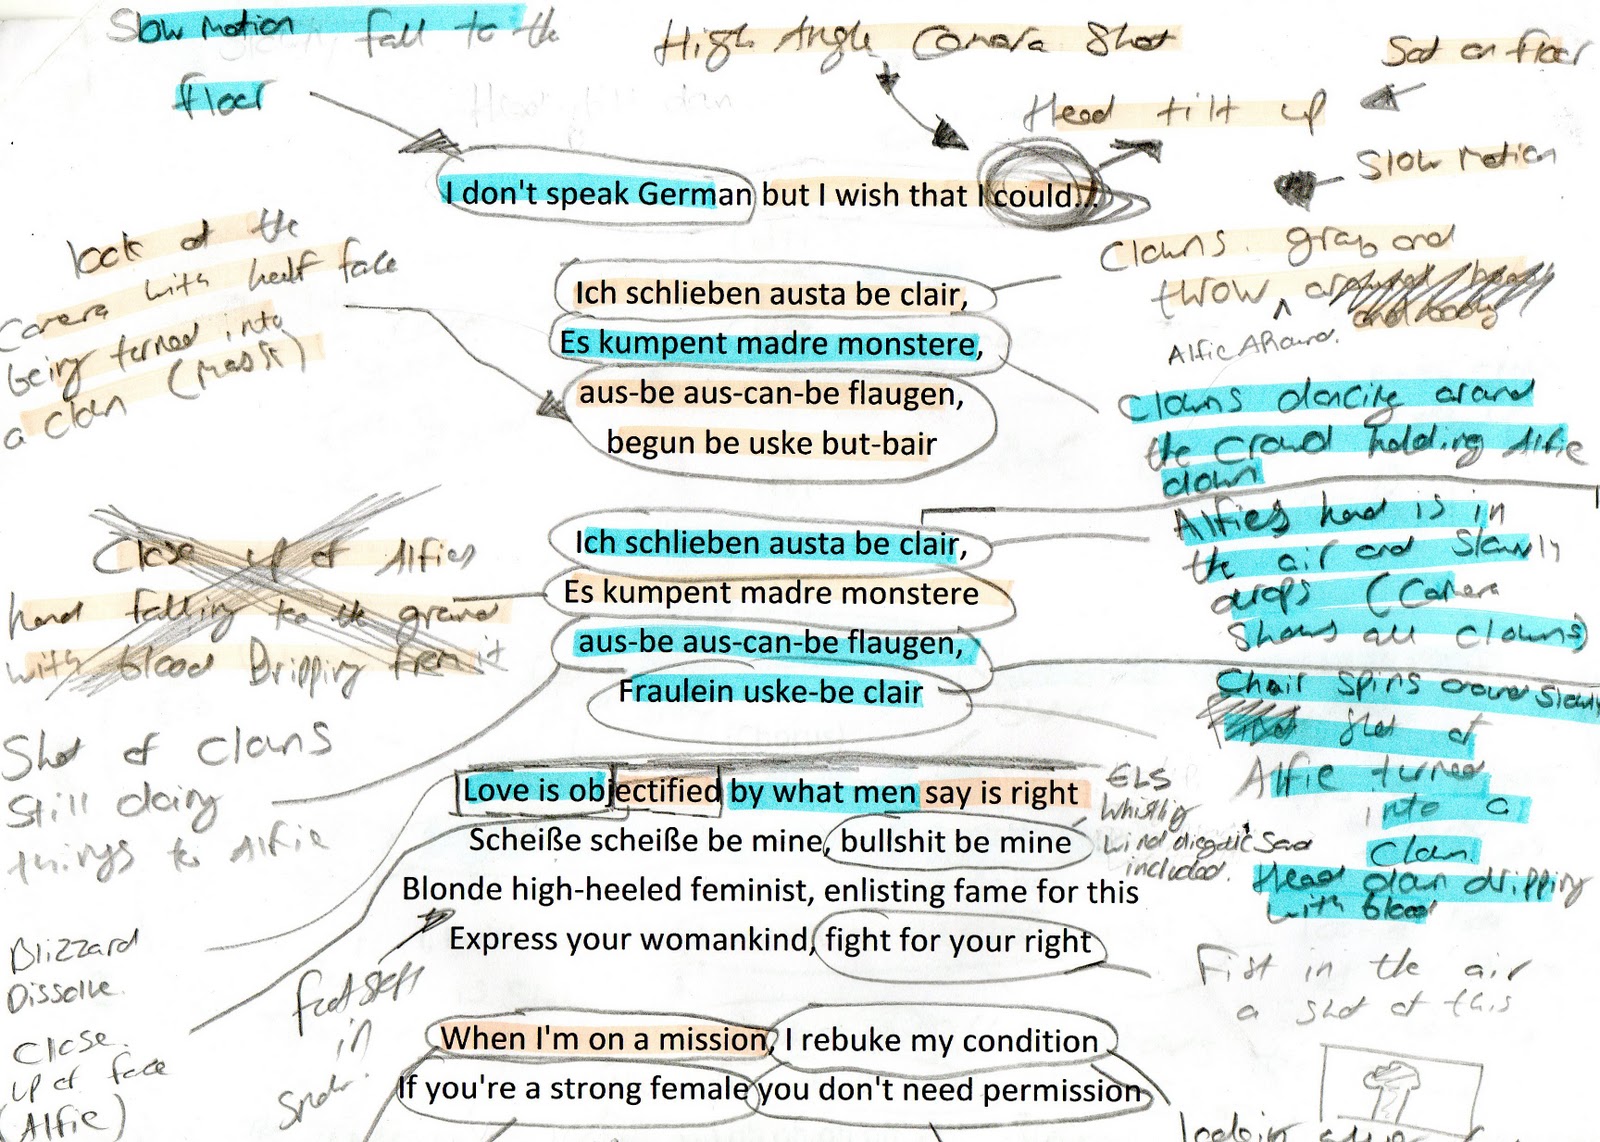 Slow Motion fall to the
floor
High Angle Camera Shot
Sat on floor
Head tilt up
Slow Motion
I don't speak German but I wish that I could...
look at the
Camera with half face
being turned into
a clown (mask)
Clowns. grab and
throw
Alfie Around.
Ich schlieben austa be clair,
Es kumpent madre monstere,
aus-be aus-can-be flaugen,
begun be uske but-bair
Clowns dancing around
the crowd holding Alfie
down
Ich schlieben austa be clair,
Es kumpent madre monstere
aus-be aus-can-be flaugen,
Fraulein uske-be clair
Close up of Alfies
hand falling to the ground
with blood Dripping from it
Alfies hand is in
the air and slowly
drops (Camera
Shows all clowns)
Shot of clowns
Still doing
things to Alfie
Chair spins around slowly
shot of
Alfie turned
into a
Clown.
Head down dripping
with blood
Love is objectified by what men say is right
Scheiße scheiße be mine, bullshit be mine
Blonde high-heeled feminist, enlisting fame for this
Express your womankind, fight for your right
ELS
Whistling
included.
Blizzard
Dissolve.
Close
up of face
(Alfie)
in
Fist in the air
a shot of this
When I'm on a mission, I rebuke my condition
If you're a strong female you don't need permission